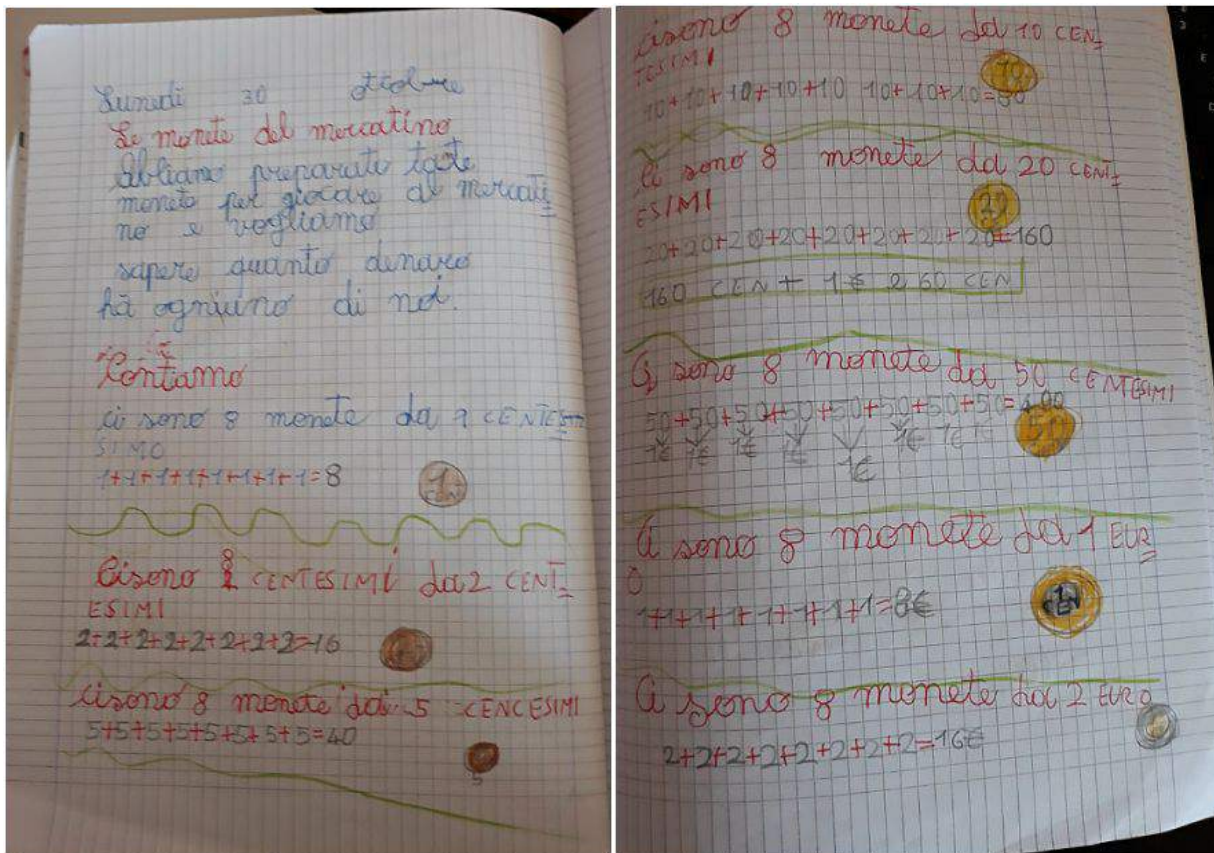 Lunedì 30 ottobre
Le monete del mercatino
Abbiamo preparate tante
monete per giocare al mercati=
no e vogliamo
sapere quanto denaro
ha ogniuno di noi.
Contamo
Ci sono 8 monete da 1 CENTE
SIMO
1+1+1+1+1+1+1+1=8
1
CEN
Ci sono 8 CENTESIMI da 2 CENT=
ESIMI
2+2+2+2+2+2+2+2=16
Ci sono 8 monete da 5 CENCESIMI
5+5+5+5+5+5+5+5=40
5
Ci sono 8 monete da 10 CEN=
TESIMI
10
10+10+10+10+10 10+10+10=80
Ci sono 8 monete da 20 CENT=
ESIMI
20
20+20+20+20+20+20+20+20=160
160 CEN + 1€ 2 60 CEN
Ci sono 8 monete da 50 CENTESIMI
50+50+50+50+50+50+50+50=4,00
50
1€ 1€ 1€ 1€ 1€ 1€ 1€ 1€
Ci sono 8 monete da 1 EUR=
O
1+1+1+1+1+1+1+1=8€
1
CEN
Ci sono 8 monete da 2 EURO
2+2+2+2+2+2+2+2=16€